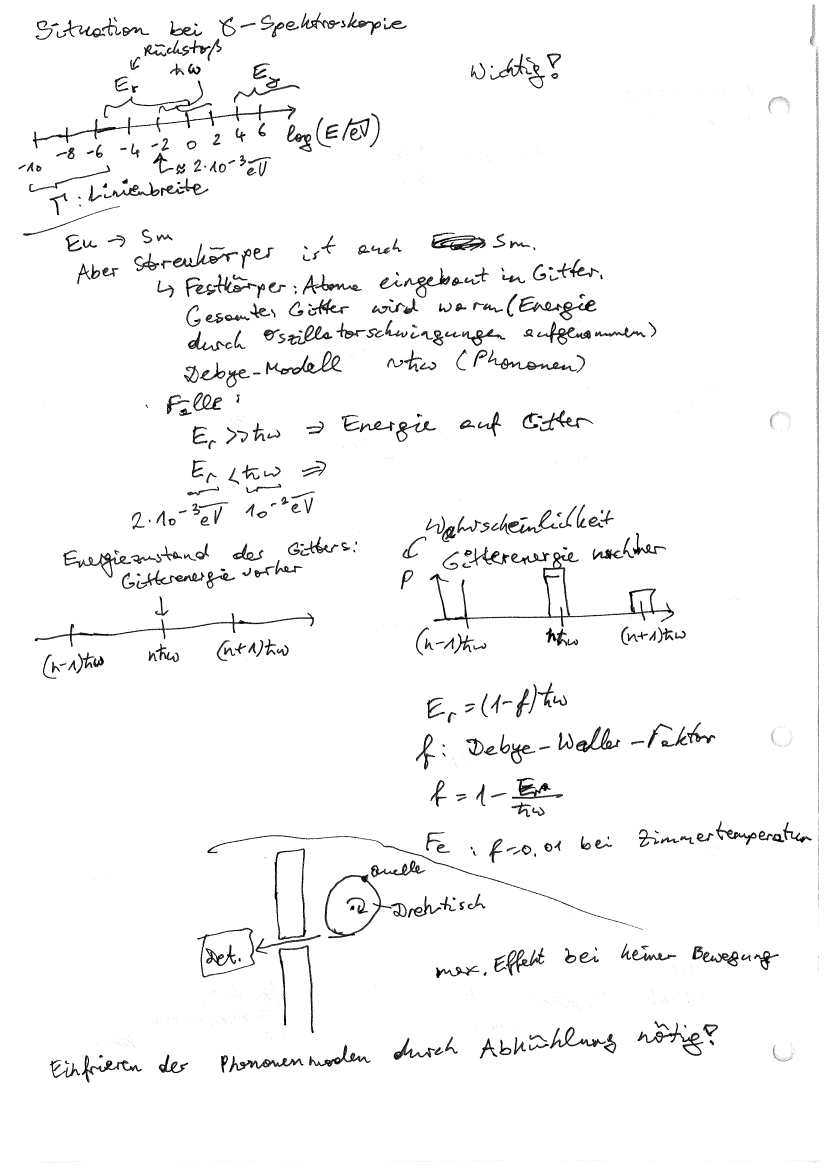 Situation bei γ-Spektroskopie
Rückstoß
E_r ħω E_γ
Wichtig!
-10 -8 -6 -4 -2 0 2 4 6 log(E/eV)
≈ 2·10⁻³ eV
Γ: Linienbreite
Eu → Sm
Aber Streukörper ist auch Sm.
↳ Festkörper: Atome eingebaut in Gitter.
Gesamtes Gitter wird warm (Energie
durch Oszillatorschwingungen aufgenommen)
Debye-Modell nħω (Phononen)
Fälle:
E_r >> ħω ⇒ Energie auf Gitter
E_r < ħω ⇒
2·10⁻³ eV 10⁻² eV
Energiezustand des Gitters:
Gitterenergie vorher
(n-1)ħω nħω (n+1)ħω
Wahrscheinlichkeit
Gitterenergie nachher
P
(n-1)ħω nħω (n+1)ħω
E_r = (1-f)ħω
f: Debye-Waller-Faktor
f = 1 - E_r/ħω
Fe: f=0,01 bei Zimmertemperatur
Quelle
Drehtisch
Det.
max. Effekt bei keiner Bewegung
Einfrieren der Phononenmoden durch Abkühlung nötig!